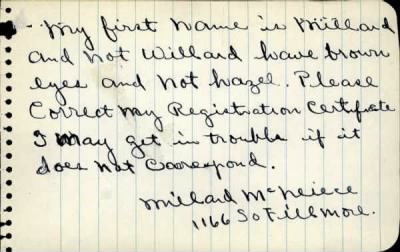 - My first name is Millard
and not Willard have brown
eyes and not hazel. Please
Correct my Registration Certificate
I may get in trouble if it
does not Coorespond.
Millard McNeice
1166 So Fillmore.